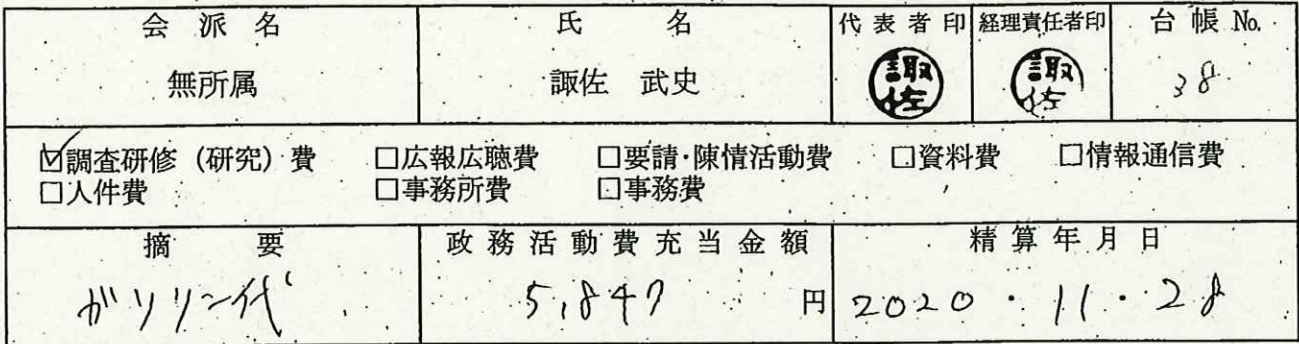 会派名 氏名 代表者印 経理責任者印 台帳No.
無所属 諏佐 武史 諏佐 諏佐 38
☑調査研修(研究)費 □広報広聴費 □要請・陳情活動費 □資料費 □情報通信費
□人件費 □事務所費 □事務費
摘要 政務活動費充当金額 精算年月日
ガソリン代 5,847 円 2020・11・28